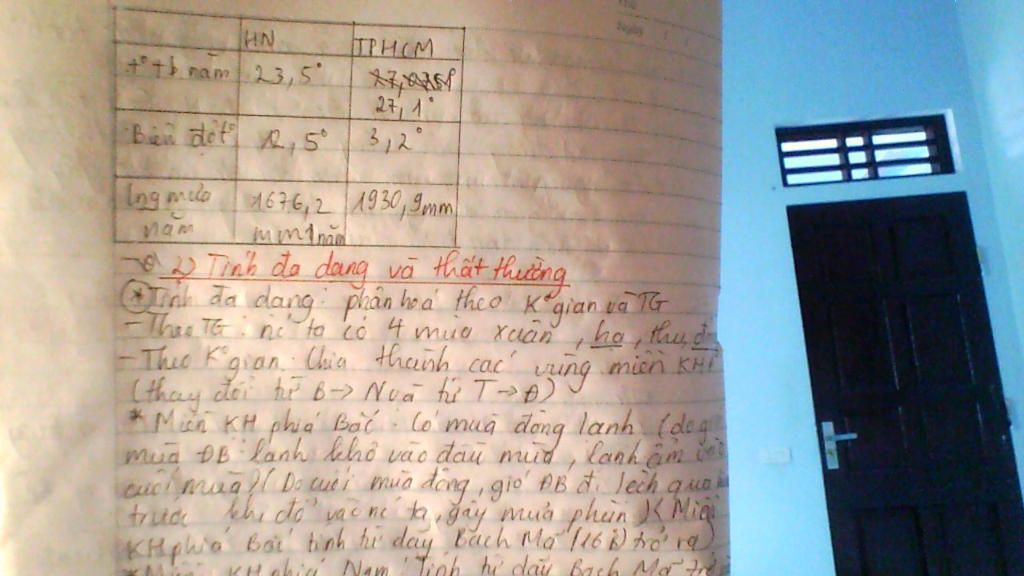 HN TPHCM
t° tb năm 23,5° 27,1°
Biên độ t° 12,5° 3,2°
lng mưa 1676,2 1930,9mm
năm mm1năm
2) Tính đa dạng và thất thường
* Tính đa dạng: phân hoá theo K° gian và TG
- Theo TG: nc ta có 4 mùa xuân, hạ, thu, đ
- Theo K° gian: Chia thành các vùng miền KH
(thay đổi từ B → N và từ T → Đ)
* Miền KH phía Bắc: Có mùa đông lạnh (do g
mùa ĐB lạnh khô vào đầu mùa, lạnh ẩm
cuối mùa) (Do cuối mùa đông, gió ĐB đi lệch qua
trước khi đổ vào nc ta, gây mưa phùn) K Miền
KH phía Bắc tính từ dãy Bạch Mã (16°B) trở ra)
* Miền KH phía Nam: Tính từ dãy Bạch Mã tr